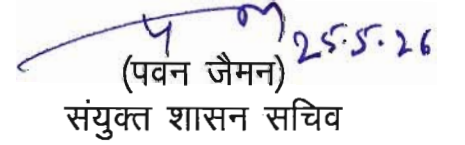 25.5.26
(पवन जैमन)
संयुक्त शासन सचिव